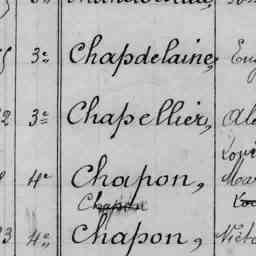 3e Chapdelaine, Eug
2 3e Chapellier, Al
Loui
4e Chapon, Mar
Chapon
3 4e Chapon, Victo